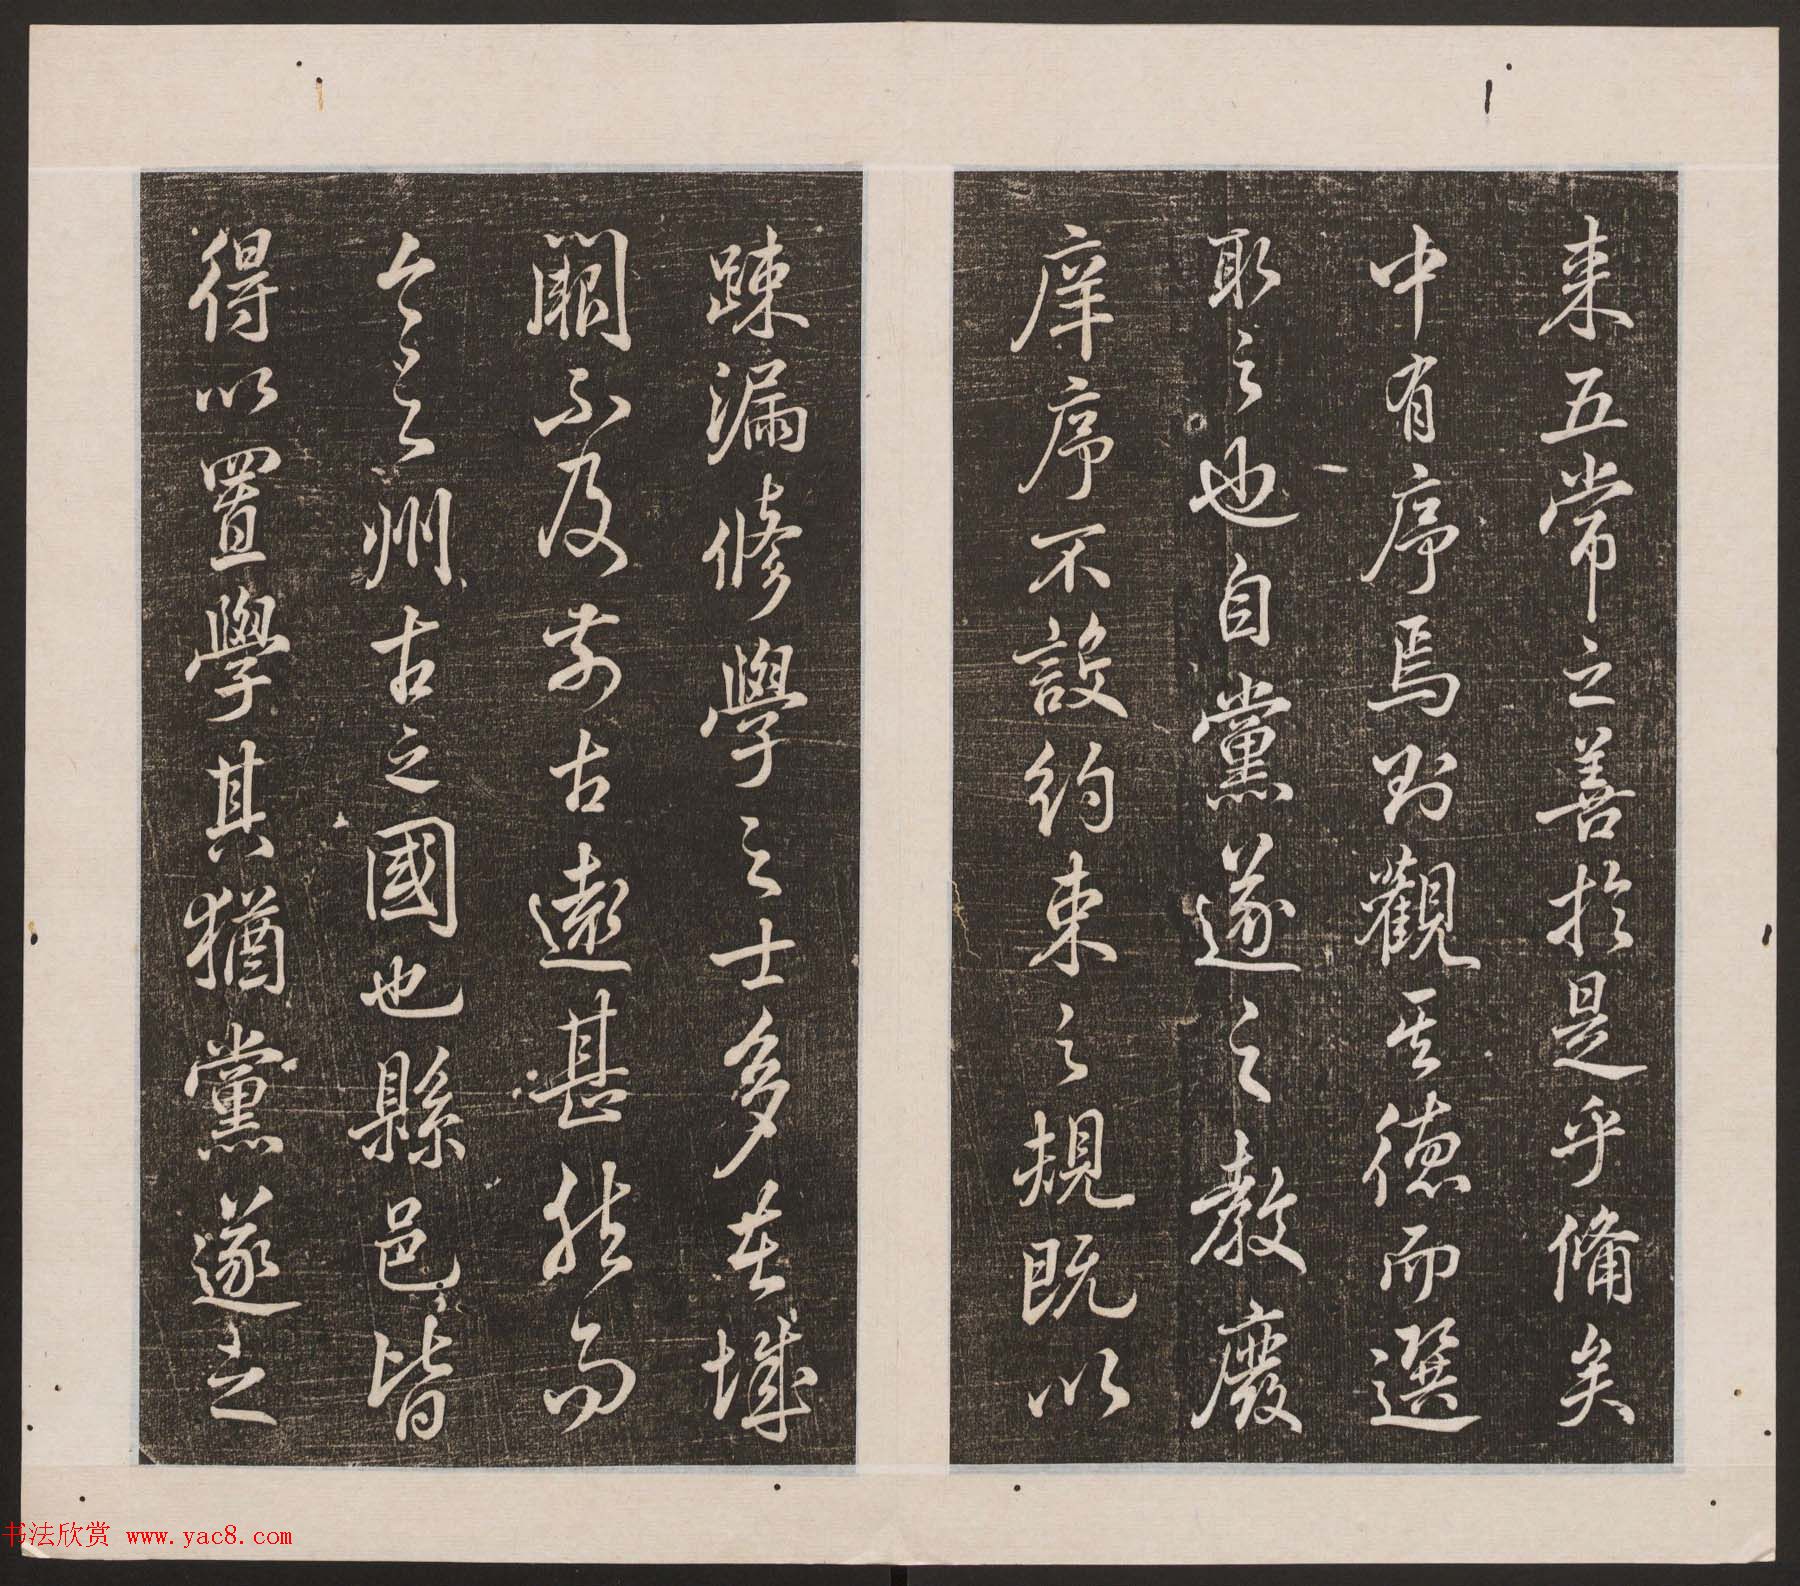 来五常之善於是乎備矣
中有序焉則觀其德而選
取之也自黨遂之教廢
庠序不設約束之規既以
踈漏修學之士多在城
闕不及前古遠甚然而
今之州古之國也縣邑皆
得以置學其猶黨遂之
书法欣赏 www.yac8.com